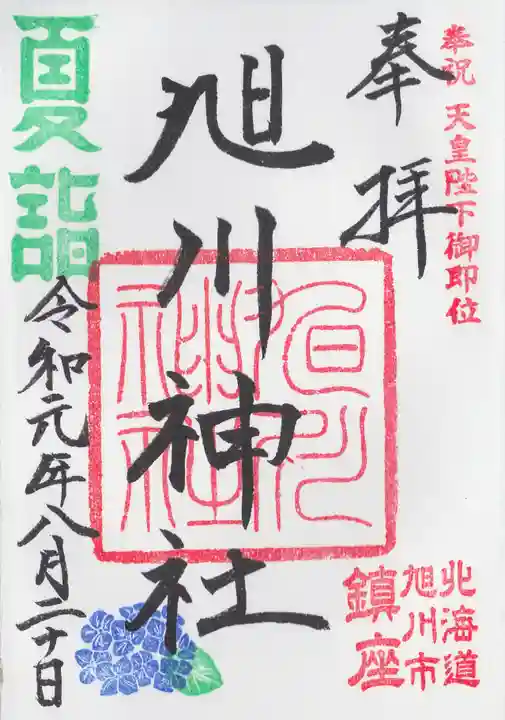 奉祝 天皇陛下御即位
奉拝
北海道
旭川市
鎮座
旭川神社
旭川
神社
夏詣
令和元年八月二十日